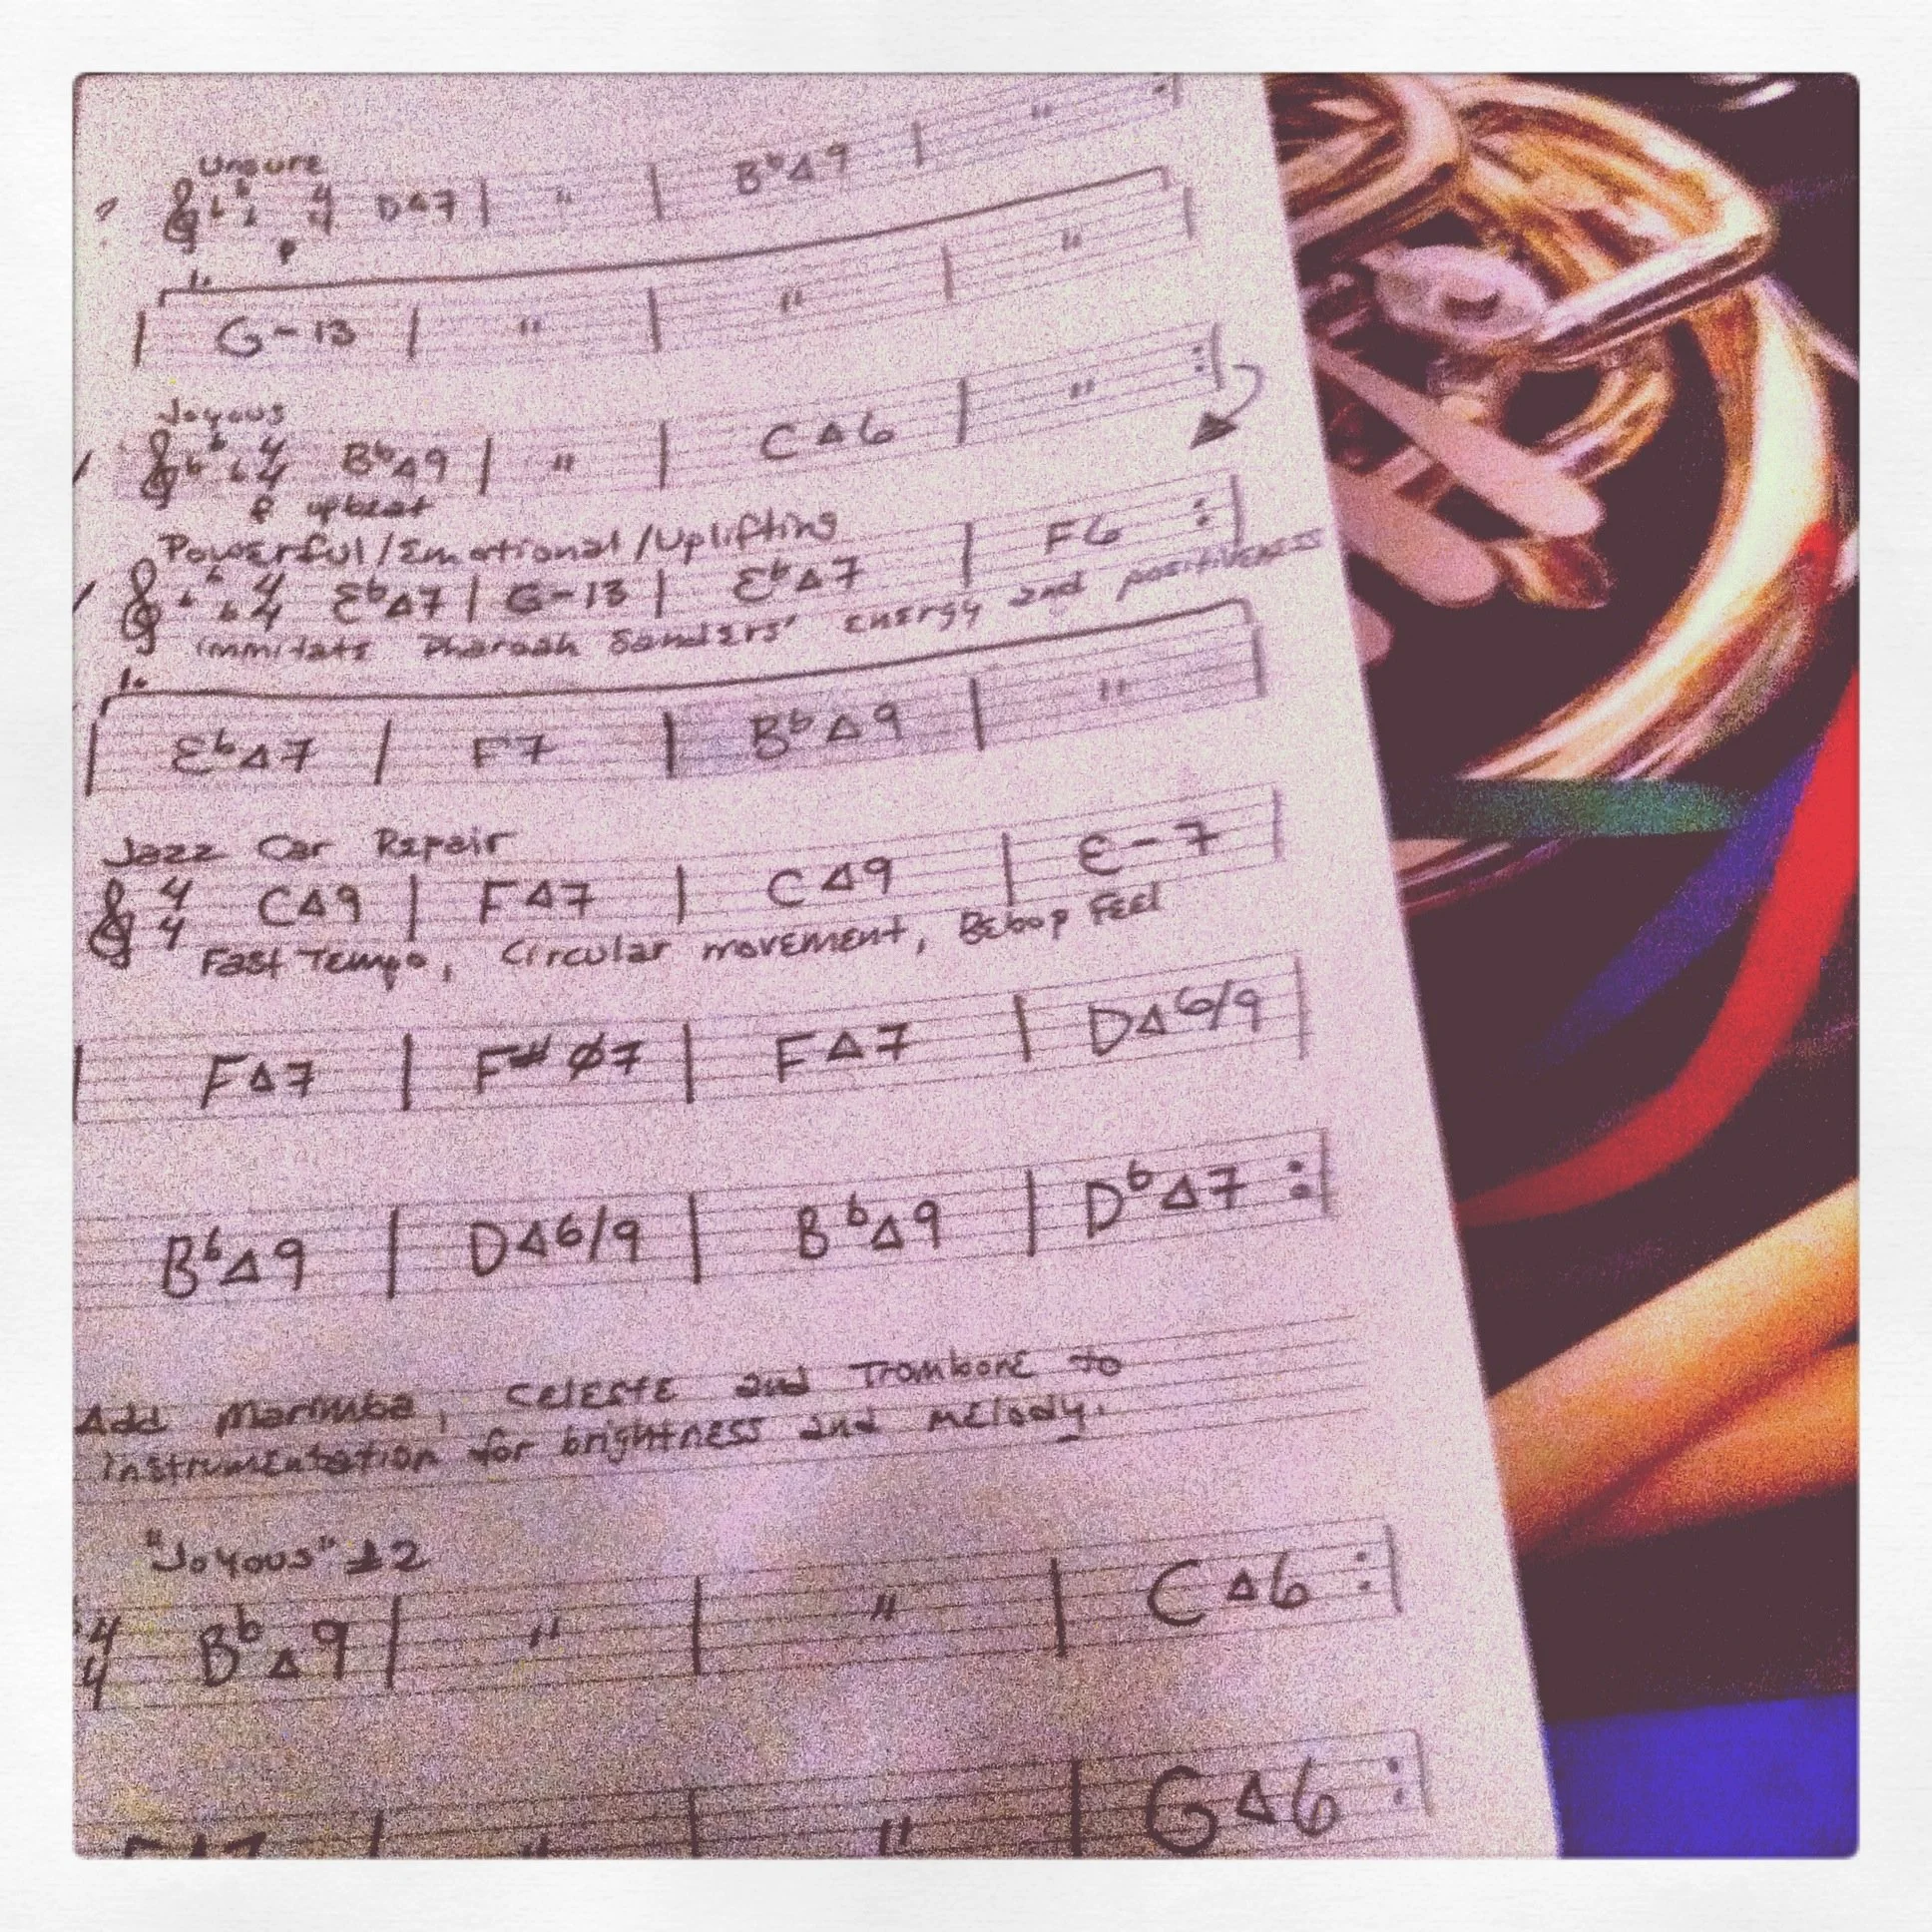 Unsure
4 4 DΔ7 | " | B♭Δ9 | " :|
p
1.
| G-13 | " | " | " |
Joyous
4 4 B♭Δ9 | " | CΔ6 | " :|
f upbeat
Powerful/Emotional/Uplifting
4 4 E♭Δ7 | G-13 | E♭Δ7 | F6 :|
immitate Pharoah Sanders' energy and positiveness
1.
| E♭Δ7 | F7 | B♭Δ9 | " |
Jazz Car Repair
4 4 CΔ9 | FΔ7 | CΔ9 | E-7 |
Fast Tempo, Circular movement, Bebop Feel
| FΔ7 | F# ø7 | FΔ7 | DΔ6/9 |
B♭Δ9 | DΔ6/9 | B♭Δ9 | D♭Δ7 :|
Add Marimba, Celeste and Trombone to
instrumentation for brightness and melody.
"Joyous" #2
4 4 B♭Δ9 | " | " | CΔ6 :|
| " | " | GΔ6 :|